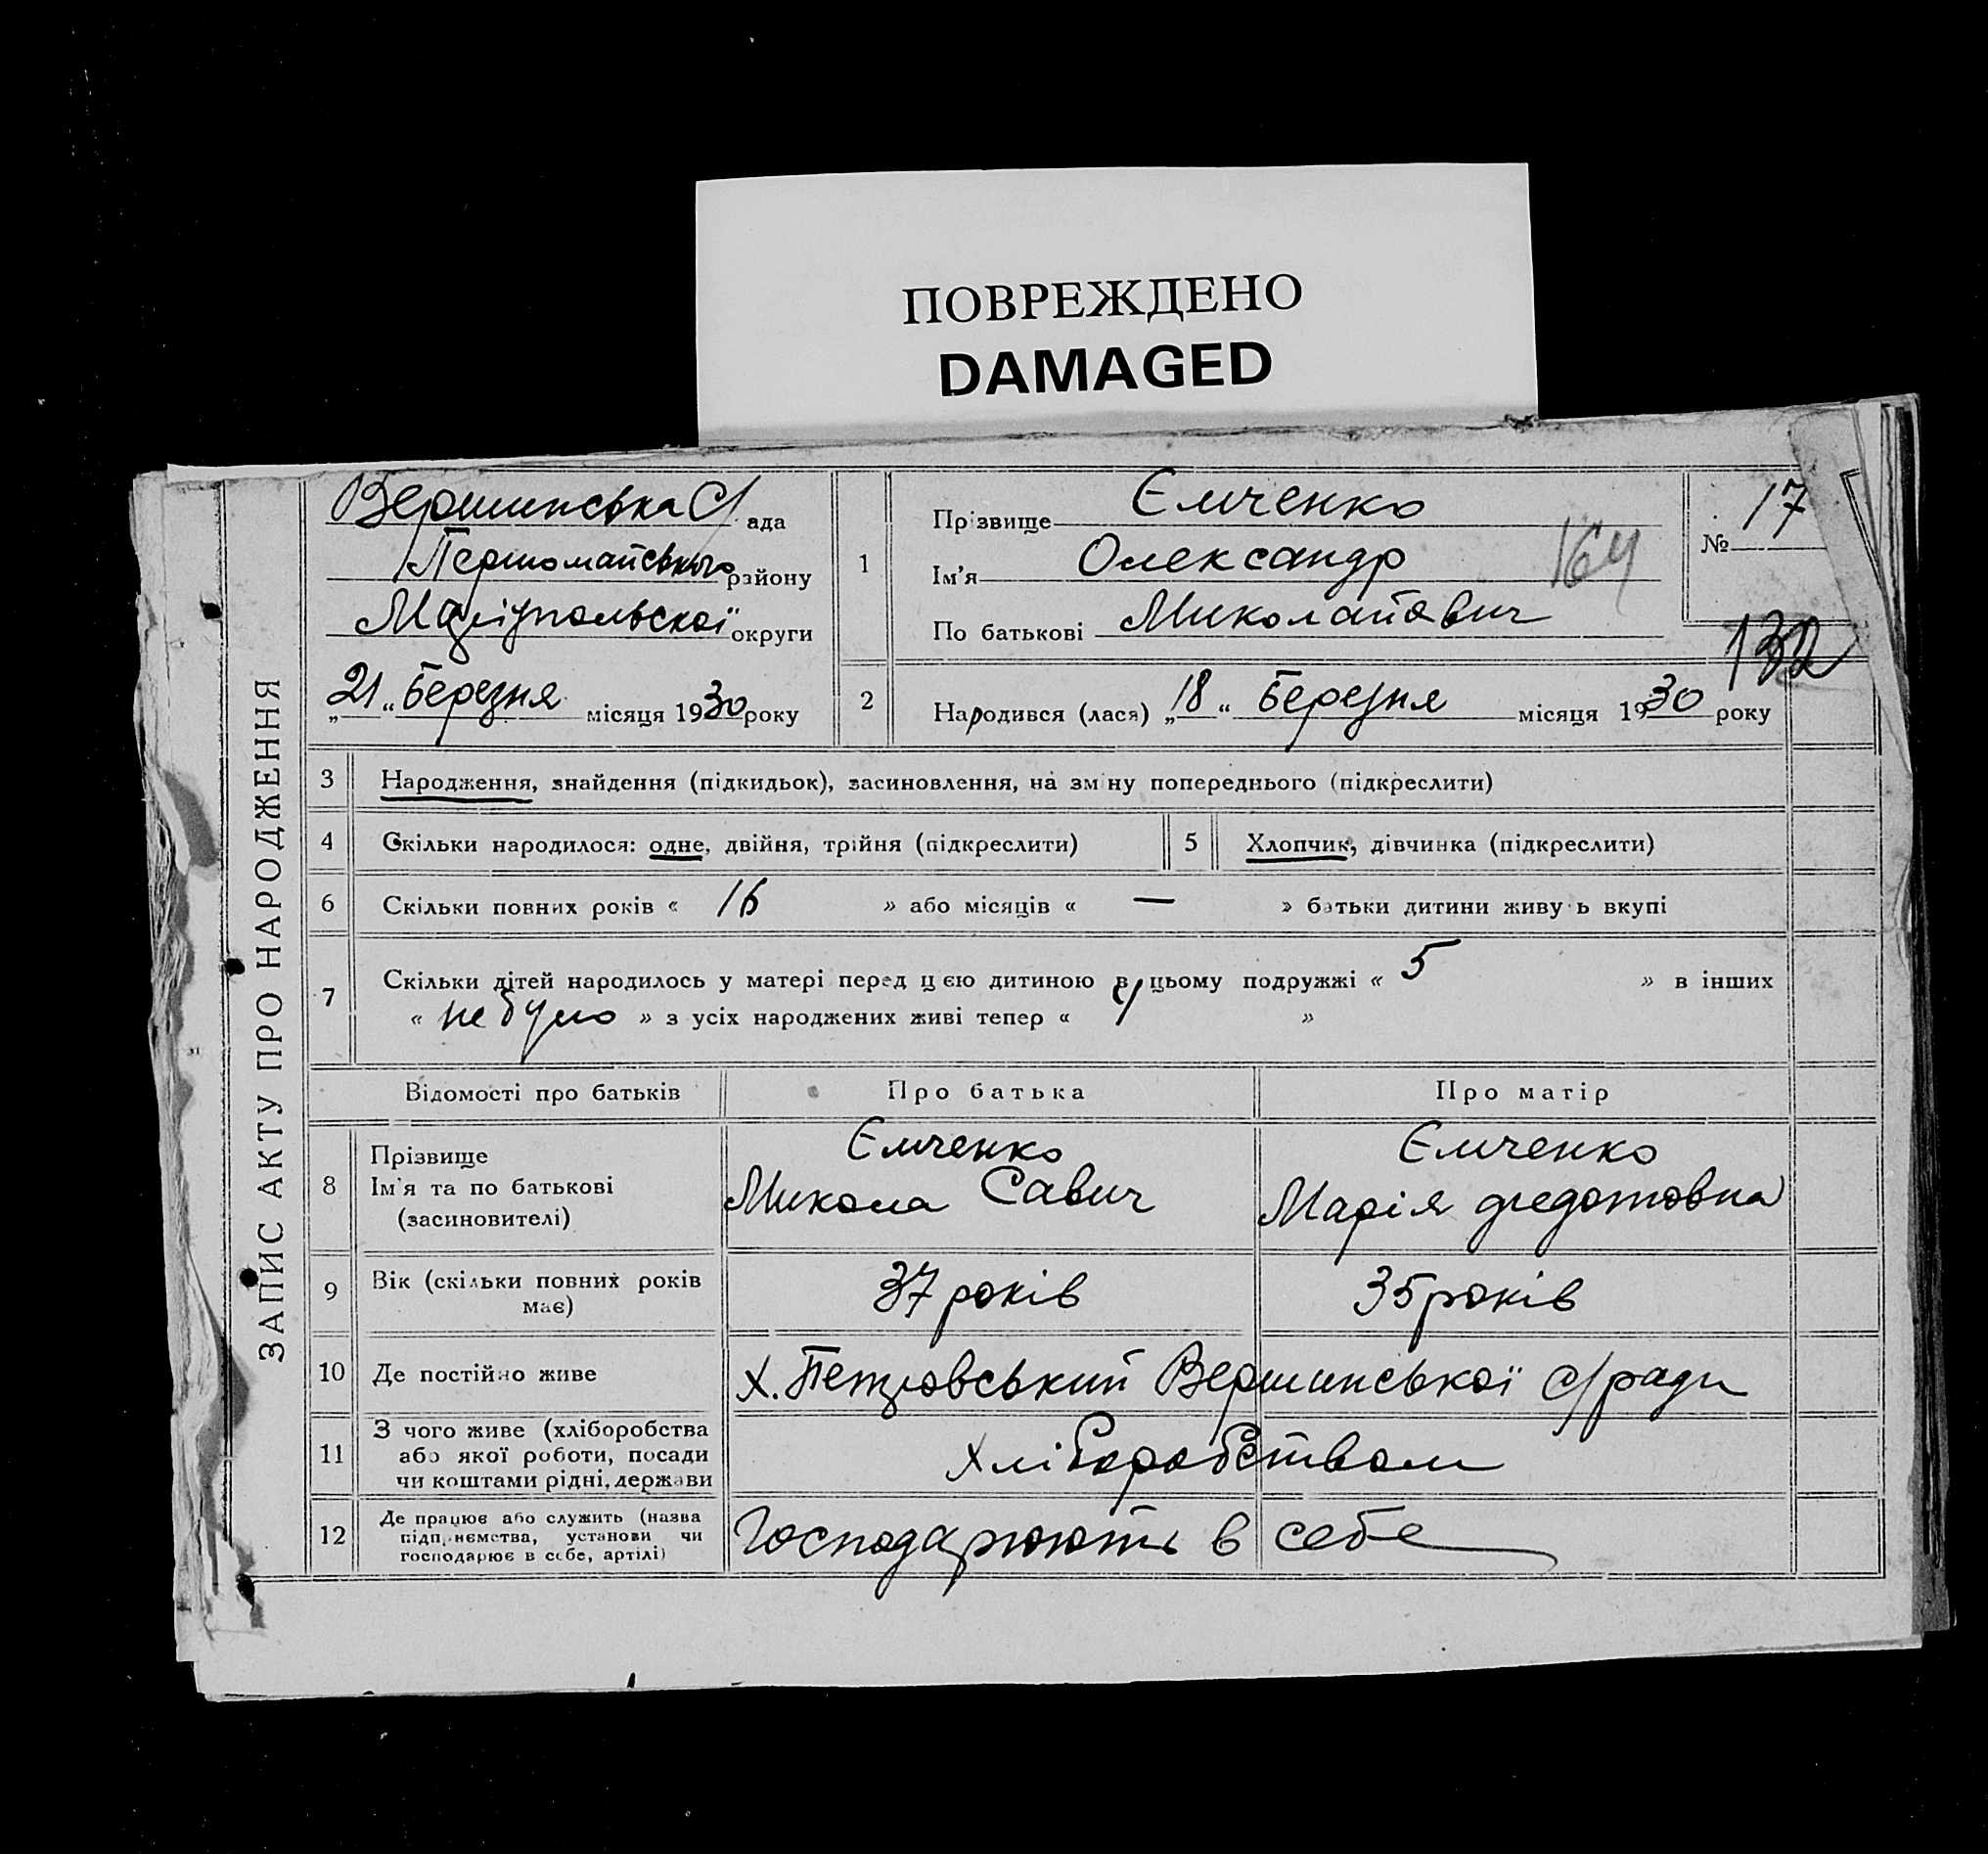 ПОВРЕЖДЕНО
DAMAGED
ЗАПИС АКТУ ПРО НАРОДЖЕННЯ
Вершинська С/ ада
Першомайського району
Маріупольської округи
„21“ Березня місяця 1930 року
1
Прізвище Ємченко
Ім'я Олександр
164
По батькові Миколайович
№ 17
132
2
Народився (лася) „18“ Березня місяця 1930 року
3 Народження, знайдення (підкидьок), засиновлення, на зміну попереднього (підкреслити)
4 Скільки народилося: одне, двійня, трійня (підкреслити)
5 Хлопчик, дівчинка (підкреслити)
6 Скільки повних років « 16 » або місяців « — » батьки дитини живуть вкупі
7 Скільки дітей народилось у матері перед цією дитиною в цьому подружжі « 5 » в інших
« не було » з усіх народжених живі тепер « 4 »
Відомості про батьків Про батька Про матір
8
Прізвище
Ім'я та по батькові
(засиновителі)
Ємченко
Микола Савич
Ємченко
Марія Федотовна
9
Вік (скільки повних років
має)
37 років
35 років
10 Де постійно живе
х. Петровський Вершинської с/ради
11
З чого живе (хліборобства
або якої роботи, посади
чи коштами рідні, держави
Хліборобством
12
Де працює або служить (назва
підприємства, установи чи
господарює в себе, артілі)
Господарюють в себе